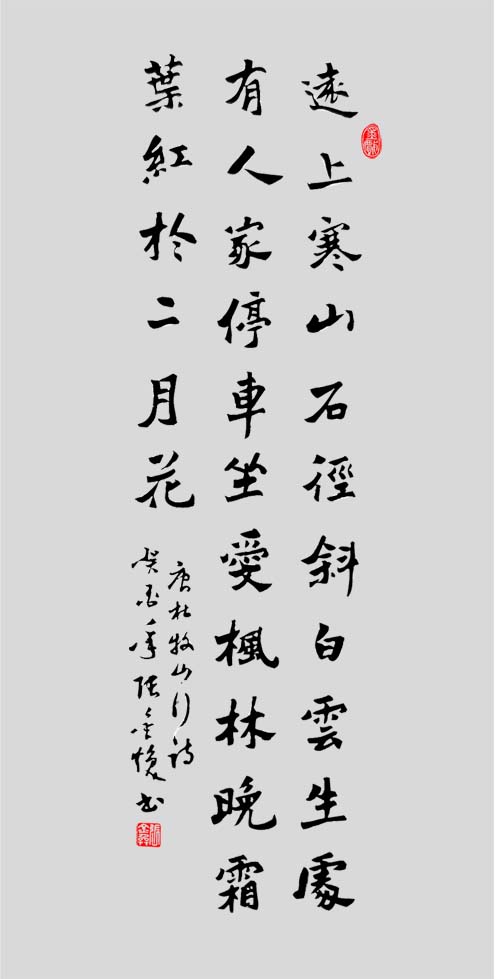 遠上寒山石徑斜白雲生處
有人家停車坐愛楓林晚霜
葉紅於二月花
唐杜牧山行詩
癸酉年張金書